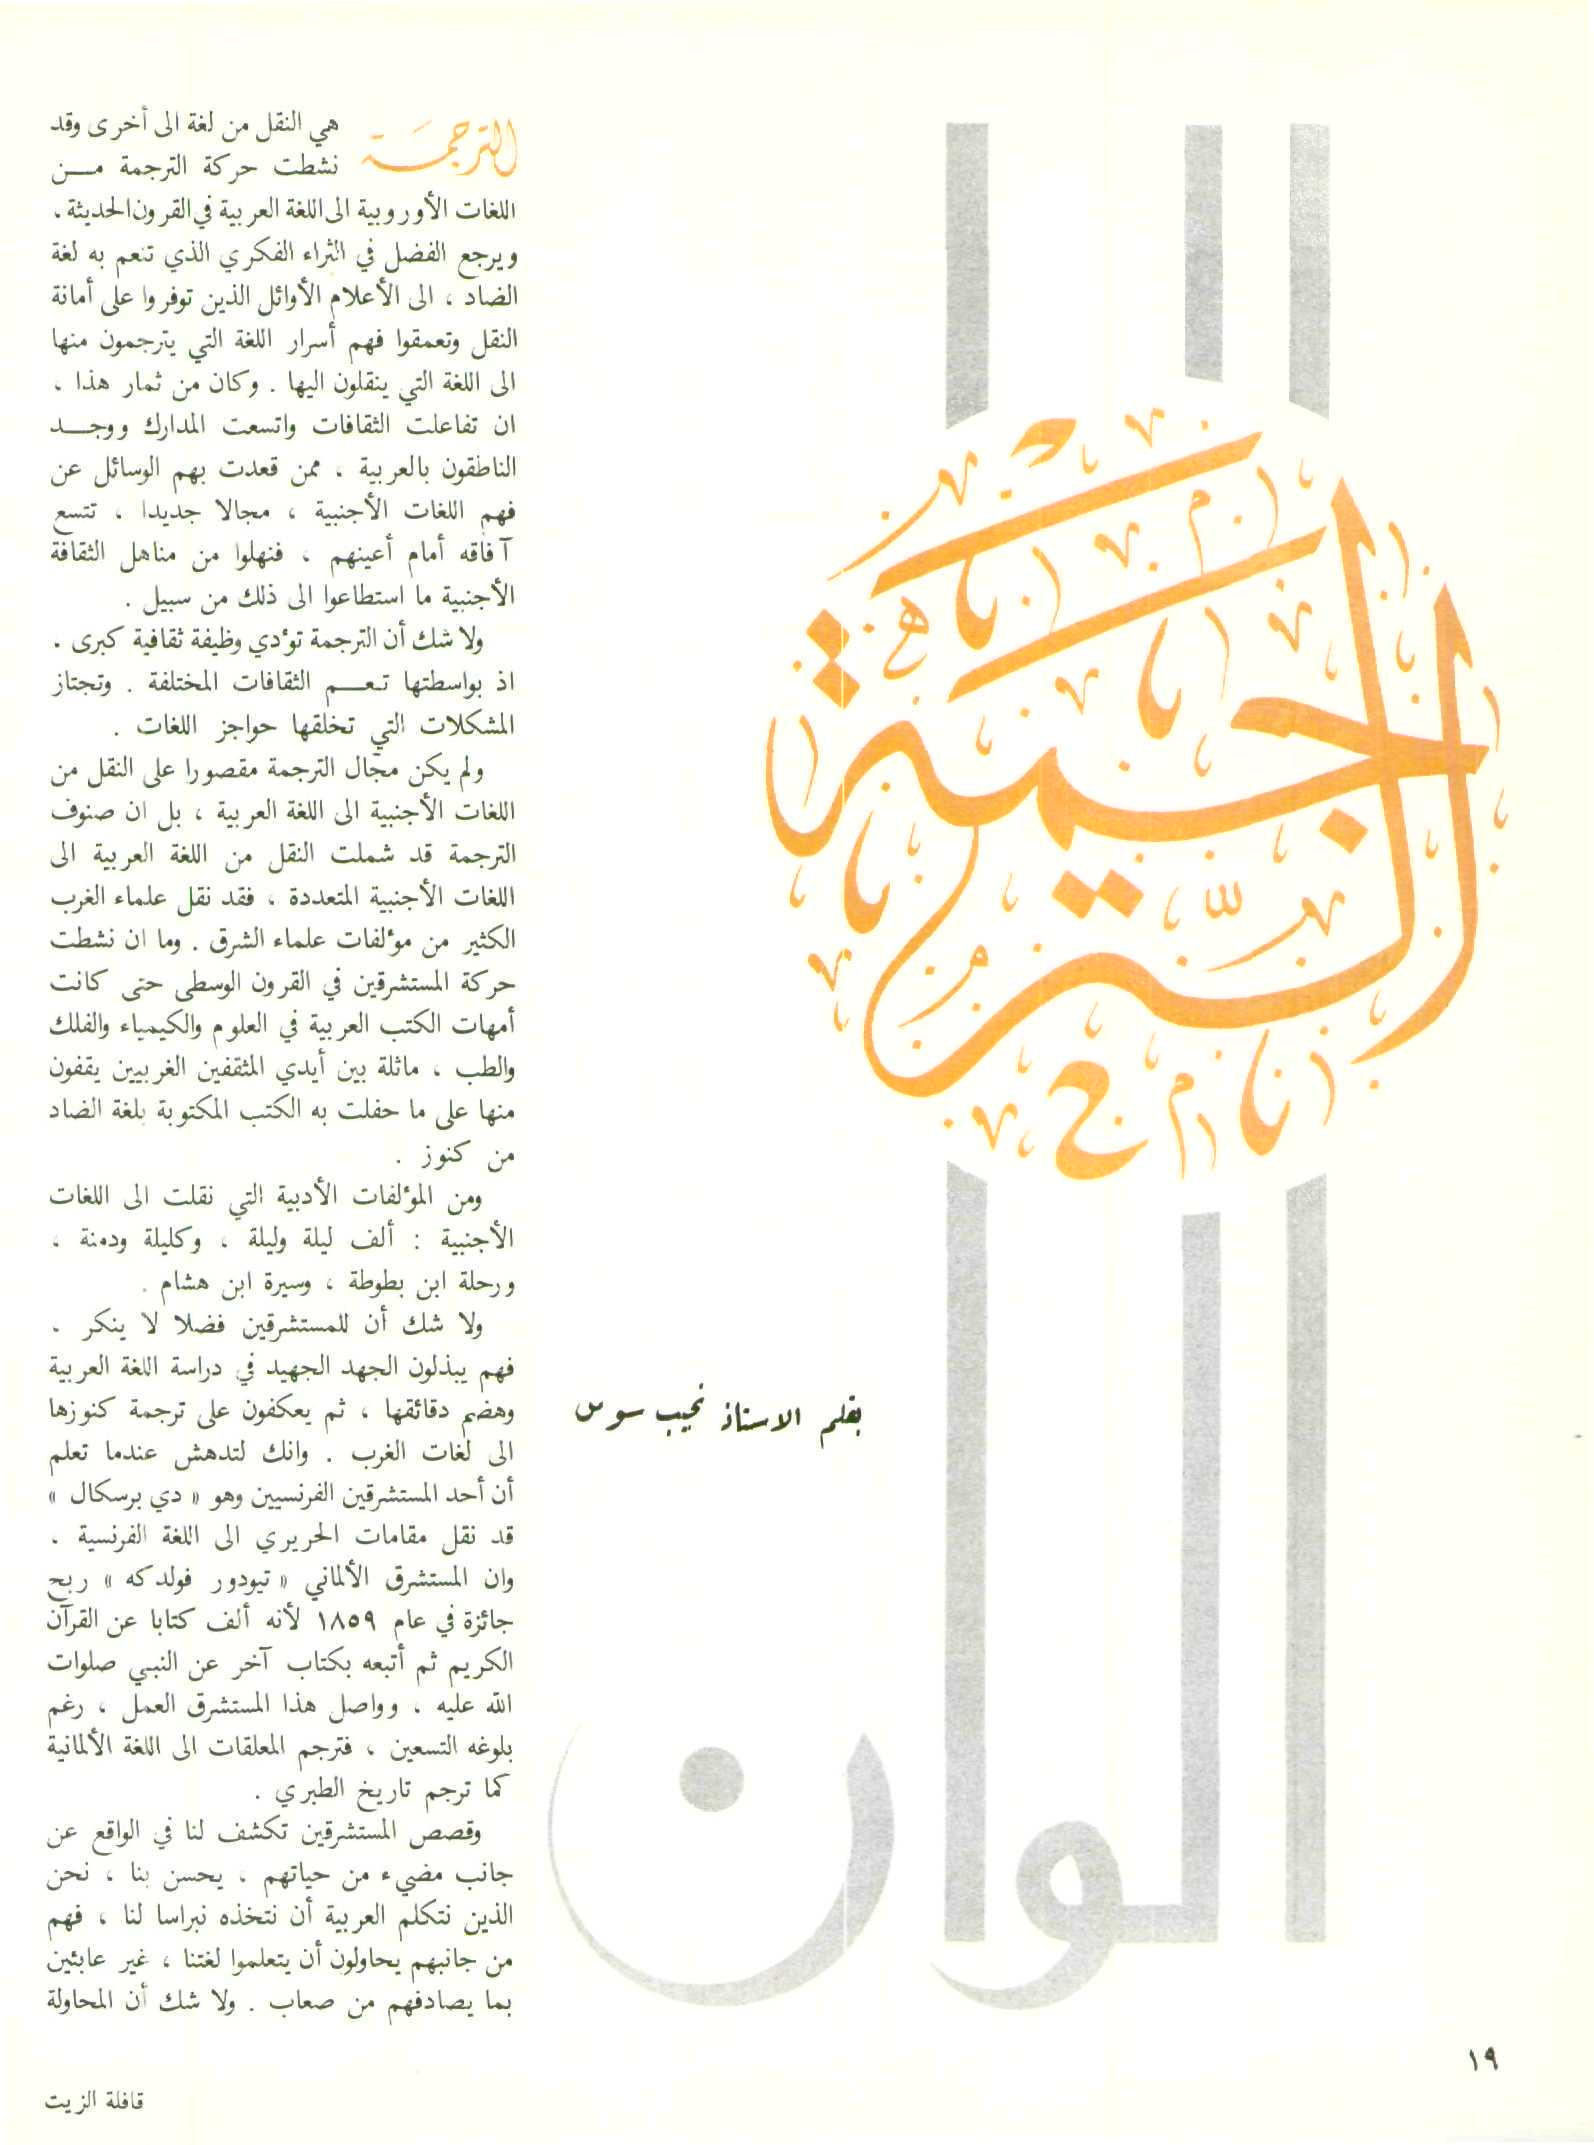 الترجمة
ألوان
بقلم الاستاذ نجيب سوس
الترجمة هي النقل من لغة الى أخرى وقد
نشطت حركة الترجمة مــن
اللغات الأوروبية الى اللغة العربية في القرون الحديثة ،
ويرجع الفضل في الثراء الفكري الذي تنعم به لغة
الضاد ، الى الأعلام الأوائل الذين توفروا على أمانة
النقل وتعمقوا فهم أسرار اللغة التي يترجمون منها
الى اللغة التي ينقلون اليها . وكان من ثمار هذا ،
ان تفاعلت الثقافات واتسعت المدارك ووجــد
الناطقون بالعربية ، ممن قعدت بهم الوسائل عن
فهم اللغات الأجنبية ، مجالا جديدا ، تتسع
آفاقه أمام أعينهم ، فنهلوا من مناهل الثقافة
الأجنبية ما استطاعوا الى ذلك من سبيل .
ولا شك أن الترجمة تؤدي وظيفة ثقافية كبرى ،
اذ بواسطتها تعــم الثقافات المختلفة . وتجتاز
المشكلات التي تخلقها حواجز اللغات .
ولم يكن مجال الترجمة مقصورا على النقل من
اللغات الأجنبية الى اللغة العربية ، بل ان صنوف
الترجمة قد شملت النقل من اللغة العربية الى
اللغات الأجنبية المتعددة ، فقد نقل علماء الغرب
الكثير من مؤلفات علماء الشرق . وما ان نشطت
حركة المستشرقين في القرون الوسطى حتى كانت
أمهات الكتب العربية في العلوم والكيمياء والفلك
والطب ، ماثلة بين أيدي المثقفين الغربيين يقفون
منها على ما حفلت به الكتب المكتوبة بلغة الضاد
من كنوز .
ومن المؤلفات الأدبية التي نقلت الى اللغات
الأجنبية : ألف ليلة وليلة ، وكليلة ودمنة ،
ورحلة ابن بطوطة ، وسيرة ابن هشام .
ولا شك أن للمستشرقين فضلا لا ينكر .
فهم يبذلون الجهد الجهيد في دراسة اللغة العربية
وهضم دقائقها ، ثم يعكفون على ترجمة كنوزها
الى لغات الغرب . وانك لتدهش عندما تعلم
أن أحد المستشرقين الفرنسيين وهو « دي برسكال »
قد نقل مقامات الحريري الى اللغة الفرنسية .
وان المستشرق الألماني « تيودور فولدكه » ربح
جائزة في عام ١٨٥٩ لأنه ألف كتابا عن القرآن
الكريم ثم أتبعه بكتاب آخر عن النبي صلوات
الله عليه ، وواصل هذا المستشرق العمل ، رغم
بلوغه التسعين ، فترجم المعلقات الى اللغة الألمانية
كما ترجم تاريخ الطبري .
وقصص المستشرقين تكشف لنا في الواقع عن
جانب مضيء من حياتهم ، يحسن بنا ، نحن
الذين نتكلم العربية أن نتخذه نبراسا لنا ، فهم
من جانبهم يحاولون أن يتعلموا لغتنا ، غير عابئين
بما يصادفهم من صعاب . ولا شك أن المحاولة
١٩
قافلة الزيت